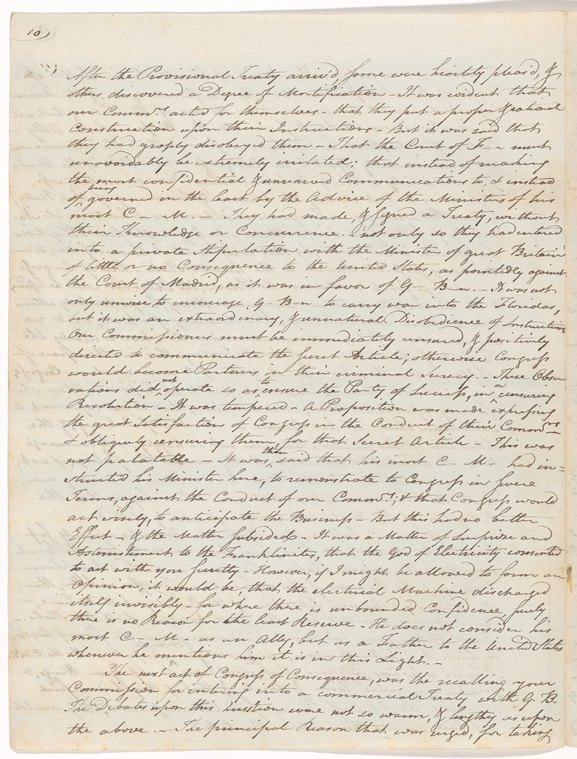 10)
After the Provisional Treaty arriv'd, some were heartily pleas'd, &
others discovered a Degree of Mortification - It was evident that
our Commrs. acted for themselves - that they put a proper & rational
Construction upon their Instructions - But it was said that
they had grossly disobeyed them - That the Court of F- must
unavoidably be extremely irritated; that instead of making
the most confidential & unreserved Communications to, & instead
of being governed in the least by the Advice of the Ministers of his
most C- M. - They had made, & signed a Treaty, without
their Knowledge or Concurrence. not only so they had entered
into a private Stipulation with the Minister of great Britain
of little or no Consequence to the United States, as pointedly against
the Court of Madrid, as it was in favor of G- B-n. - It was not
only unwise to encourage G- B-n to carry war into the Floridas,
but it was an extraordinary, & unnatural Disobedience of Instructions
Our Commissioners must be immediately censured, & positively
directed to communicate the secret Article; otherwise Congress
would become Partners in their criminal Secrecy - These Obser
vations did not operate so as to ensure the Party of Success, in a censuring
Resolution - It was tempered - A Proposition was made expressing
the great Satisfaction of Congress in the Conduct of their Commrs
& obliquely censuring them, for that Secret Article - This was
not palatable - It was then said that his most C- M- had in-
structed his Minister here, to remonstrate to Congress in severe
Terms, against the Conduct of our Commrs.; & that Congress would
act wisely, to anticipate the Business - But this had no better
Effect - & the Matter subsided - It was a Matter of Surprize and
Astonishment to the Franklinites, that the God of Electricity consented
to act with you secretly - However, if I might be allowed to form an
Opinion, it would be, that the electrical Machine discharged
itself invisibly - for where there is unbounded Confidence, surely
there is no Reason for the least Reserve - He does not consider his
most C- M- as an Ally, but as a Father to the United States
whenever he mentions him it is in this Light. -
The next act of Congress of Consequence, was the recalling your
Commission for entring into a commercial Treaty with G B.
The Debates upon this question were not so warm, & lengthy as upon
the above. - The principal Reason that was urged, for taking